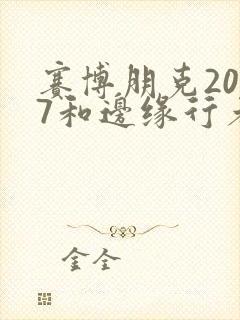 賽博朋克20
7和邊缘行
金全